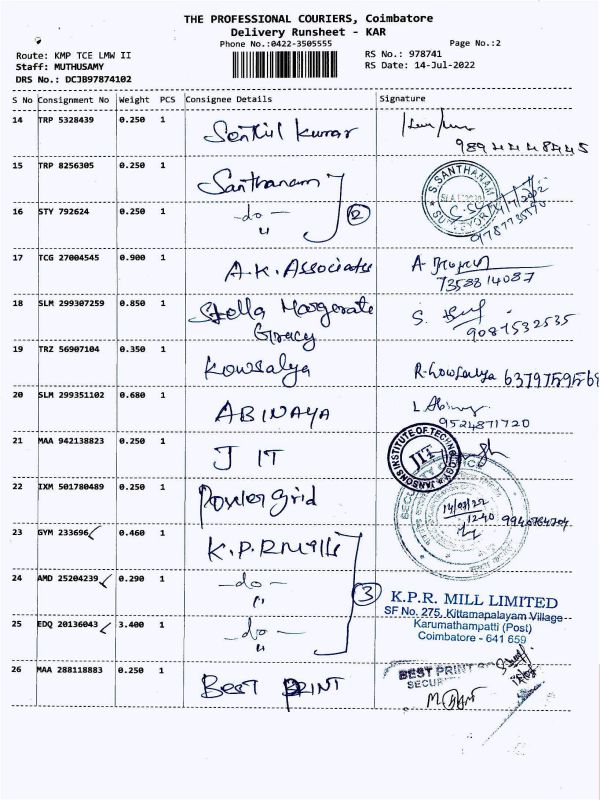 THE PROFESSIONAL COURIERS, Coimbatore
Delivery Runsheet - KAR
Phone No.:0422-3505555
Page No.:2
Route: KMP TCE LMW II
Staff: MUTHUSAMY
DRS No.: DCJB97874102
RS No.: 978741
RS Date: 14-Jul-2022
S No Consignment No Weight PCS Consignee Details Signature
14 TRP 5328439 0.250 1 Senthil Kumar
15 TRP 8256305 0.250 1 Santhanam
S.SANTHANAM
SURVEYOR
16 STY 792624 0.250 1 -do- 2
9787735590
17 TCG 27004545 0.900 1 A.K. Associates
7358814087
18 SLM 299307259 0.850 1 Stella Margerate
Gracy
S.
9087532535
19 TRZ 56907104 0.350 1 Kowsalya R. Kowsalya 6379759569
20 SLM 299351102 0.680 1 ABINAYA
9524871720
21 MAA 942138823 0.250 1 JIT
JANSONS INSTITUTE OF TECHNOLOGY
JIT
22 IXM 501780489 0.250 1 Powergrid
12:40
23 GYM 233696 0.460 1 K.P.R Mills
24 AMD 25204239 0.290 1 -do- 3
25 EDQ 20136043 3.400 1 -do-
K.P.R. MILL LIMITED
SF No. 275, Kittamapalayam Village
Karumathampatti (Post)
Coimbatore - 641 659
26 MAA 288118883 0.250 1 BEST PRINT
BEST PRINT